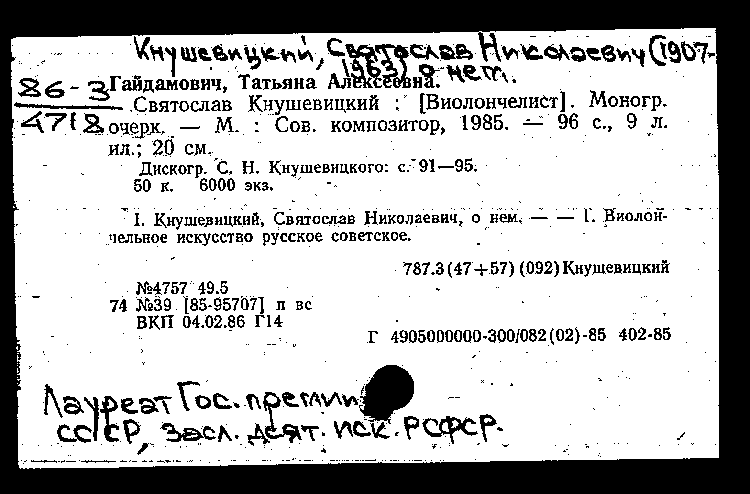 Кнушевицкий, Святослав Николаевич (1907-
1963) о нем.
86-3
4718
Гайдамович, Татьяна Алексеевна.
Святослав Кнушевицкий : [Виолончелист]. Моногр.
очерк. — М. : Сов. композитор, 1985. — 96 с., 9 л.
ил.; 20 см.
Дискогр. С. Н. Кнушевицкого: с. 91—95.
50 к. 6000 экз.
I. Кнушевицкий, Святослав Николаевич, о нем. — — 1. Виолон-
чельное искусство русское советское.
787.3(47+57)(092)Кнушевицкий
№4757 49.5
74 №39 [85-95707] п вс
ВКП 04.02.86 Г14
Г 4905000000-300/082(02)-85 402-85
Лауреат Гос. премии
СССР, Засл. деят. иск. РСФСР.